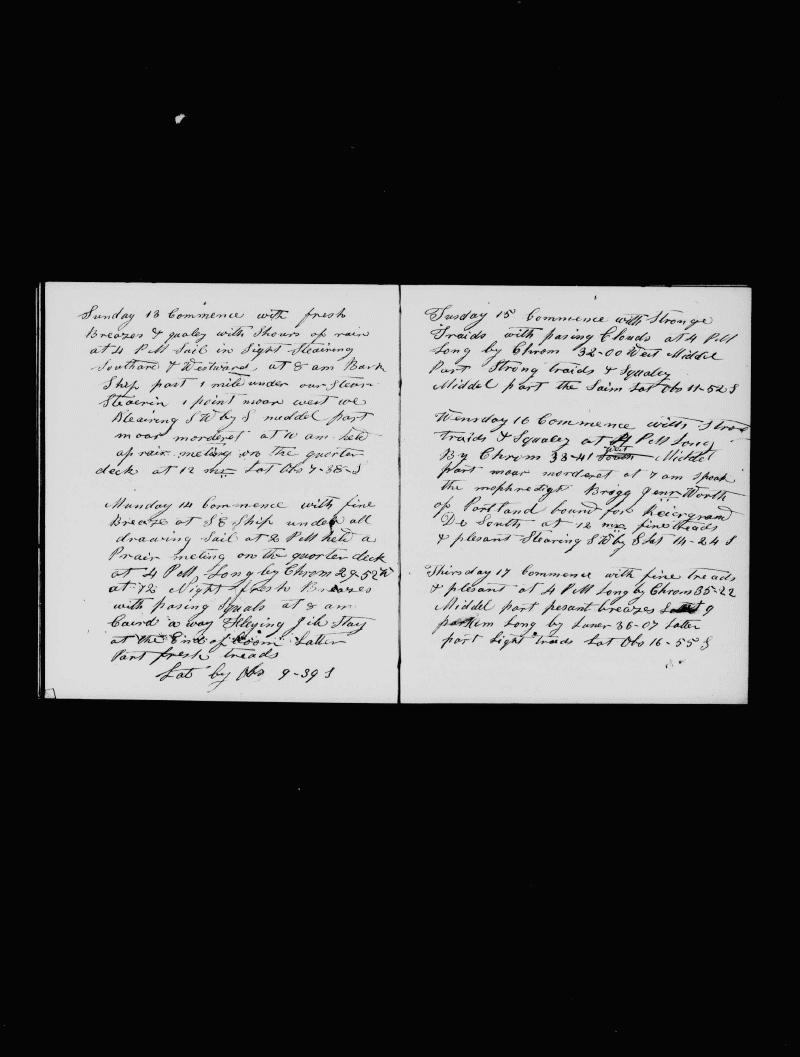 Sunday 13 Commence with fresh
Breazes & qualey with Shours of rain
at 4 P M Sail in Sight Stearing
Southard & Westward, at 8 am Bark
Ship past 1 mile under our Stear
Stearin 1 point moar west we
Stearing S W by S middel part
moar morderet at 10 am held
a prair meting on the quarter
deck at 12 m Lat Obs 7-38-S
Munday 14 Commence with fine
Breaze at S E Ship under all
drawing Sail at 2 P M held a
Prair meting on the quorter deck
at 4 P M Long by Chrom 29-52 W
at 72 Night fresh Breazes
with pasing Squals at 8 am
Caird a way Fleying Jib Stay
at the End of Boom Latter
Part fresh treads
Lat by Obs 9-39 S
Tusday 15 Commence with Stronge
Traids with pasing Clouds at 4 P M
Long by Chrom 32-00 West Middel
Part Strong traids & Squaley
Middel part the Saim Lat Obs 11-52 S
Wensday 16 Commence with Stron
traids & Squaley at 4 P M Long
By Chrom 33-41 West Middel
part moar morderet at 7 am Spoak
the Brigg Worth
of Portland bound for
De South at 12 m fine treads
& plesant Stearing S W by S Lat 14-24 S
Thirsday 17 Commence with fine treads
& plesant at 4 P M Long by Chrom 35-22
Middel part pesant breazes 9
Long by Luner 36-07 Latter
part Light traids Lat Obs 16-55 S